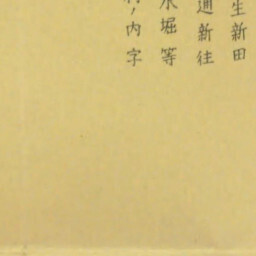 生新田
通新往
水堀等
ノ内字